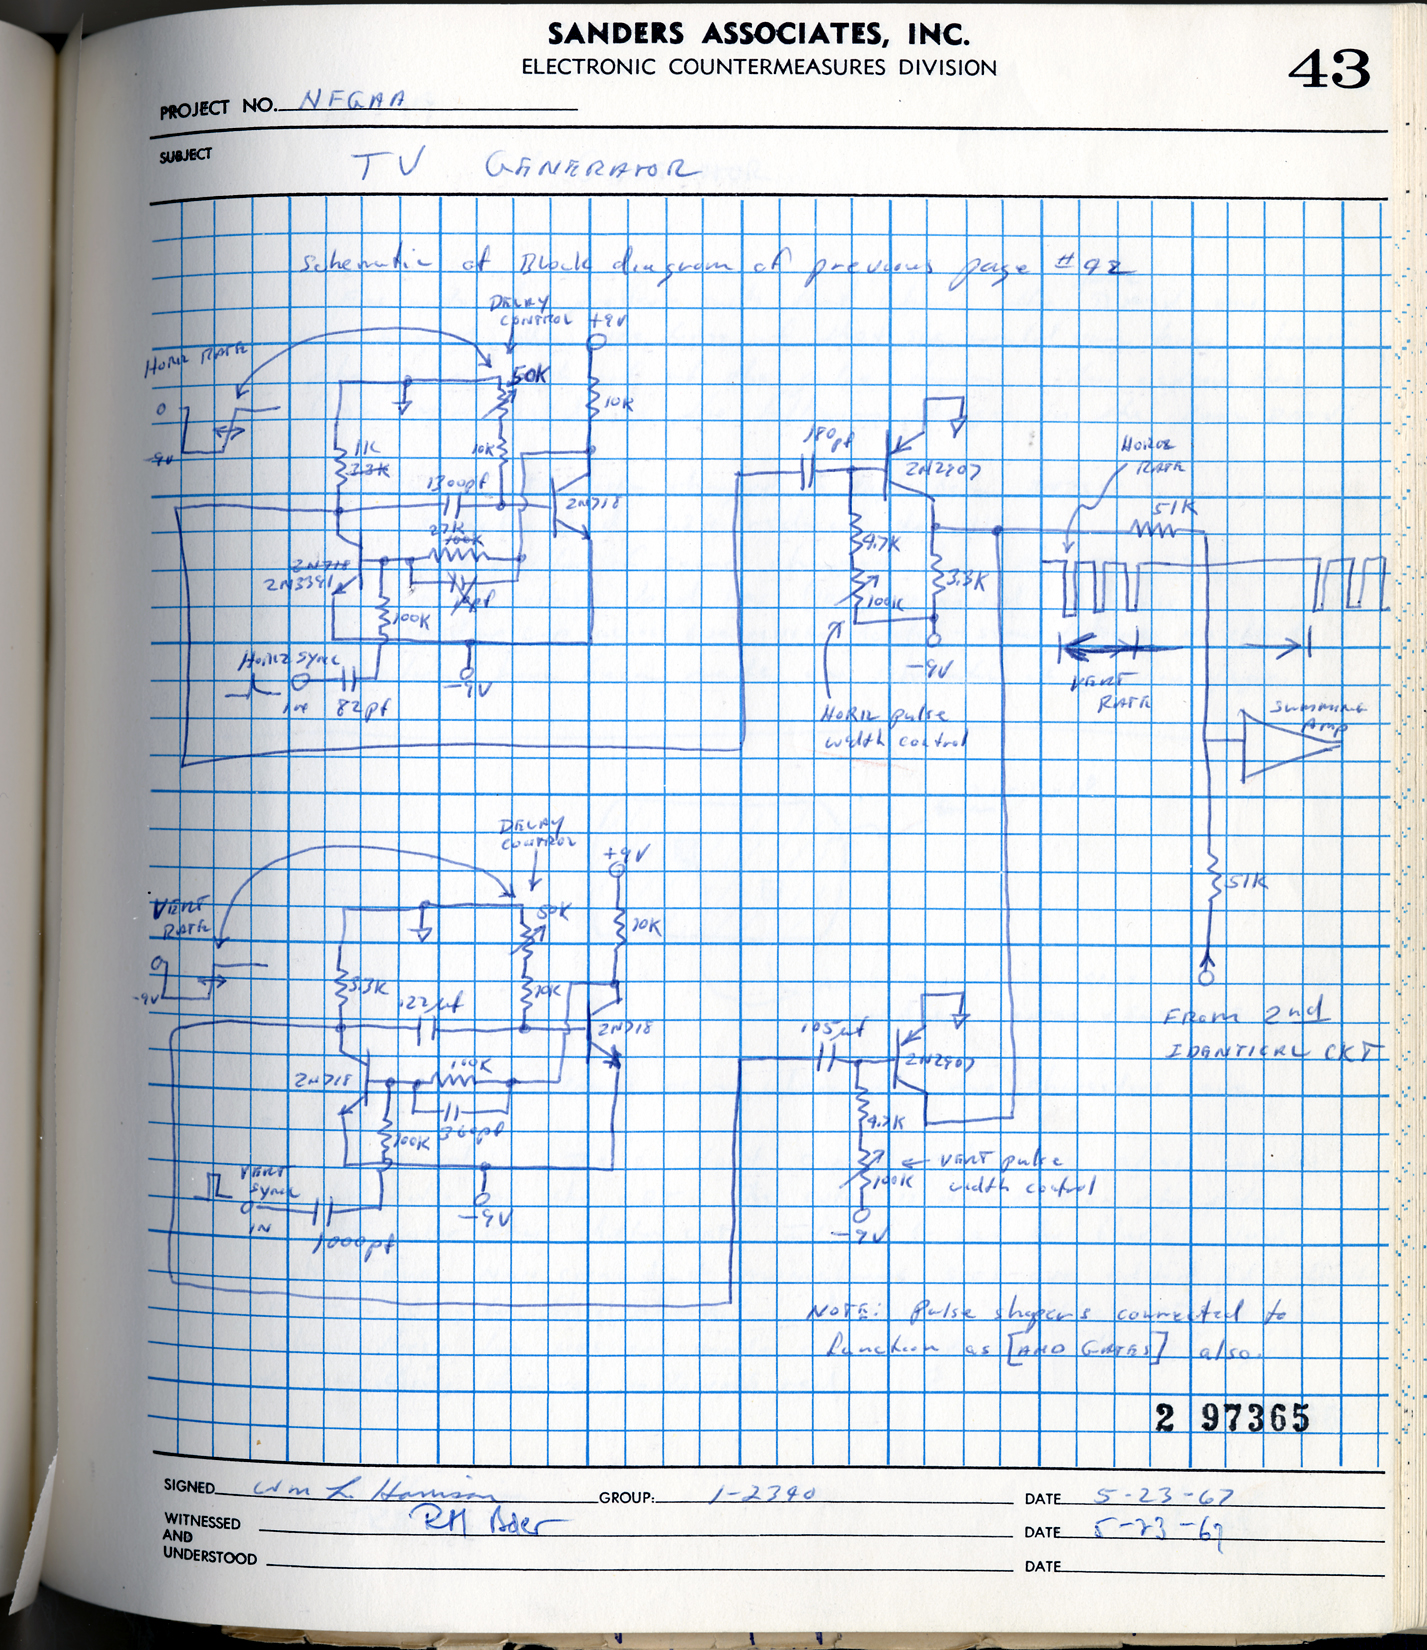 SANDERS ASSOCIATES, INC.
ELECTRONIC COUNTERMEASURES DIVISION
43
PROJECT NO. NFGAA
SUBJECT TV GENERATOR
Schematic of Block diagram of previous page #42
DELAY
CONTROL
+9V
HORIZ RATE
50K
0
-9V
10K
10K
1K
3.3K
1300pf
2N718
27K
100K
2N718
2N3391
10pf
100K
HORIZ SYNC
IN
82pf
-9V
180pf
2N2907
4.7K
100K
3.3K
-9V
HORIZ pulse
width control
HORIZ
RATE
51K
VERT
RATE
SUMMING
AMP
51K
FROM 2nd
IDENTICAL CKT
DELAY
CONTROL
+9V
VERT
RATE
50K
0
-9V
20K
3.3K
.22µf
2N718
2N718
100K
360pf
100K
VERT
SYNC
IN
1000pf
-9V
2N2907
4.7K
100K
VERT pulse
width control
-9V
NOTE: Pulse shapers connected to
function as [AND GATES] also.
2 97365
SIGNED Wm L. Harrison GROUP: 1-2390 DATE 5-23-67
WITNESSED
AND
UNDERSTOOD
RH Baer DATE 5-23-67
DATE